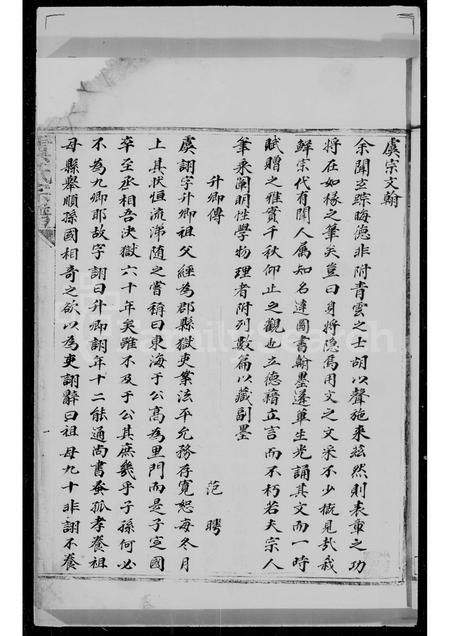 虞宗文翰
余聞立踪晦德非附青雲之士胡以聲施來茲然則表章之功
將在如椽之筆矣豈曰身將隱焉用文之文采不少概見哉我
鮮宗代有聞人屬知名達圖書翰墨蓬蓽生光誦其文而一時
賦贈之雅實千秋仰止之觀也立德藉立言而不朽若夫宗人
筆乘闡明性學物理者附列數篇以藏副墨
升卿傳 范曄
虞詡字升卿祖父經為郡縣獄吏案法平允務存寬恕每冬月
上其狀恒流涕隨之嘗稱曰東海于公高為里門而是子定國
卒至丞相吾決獄六十年矣雖不及于公其庶幾乎子孫何必
不為九卿耶故字詡曰升卿詡年十二能通尚書蚤孤孝養祖
母縣舉順孫國相奇之欲以為吏詡辭曰祖母九十非詡不養
FamilySearch